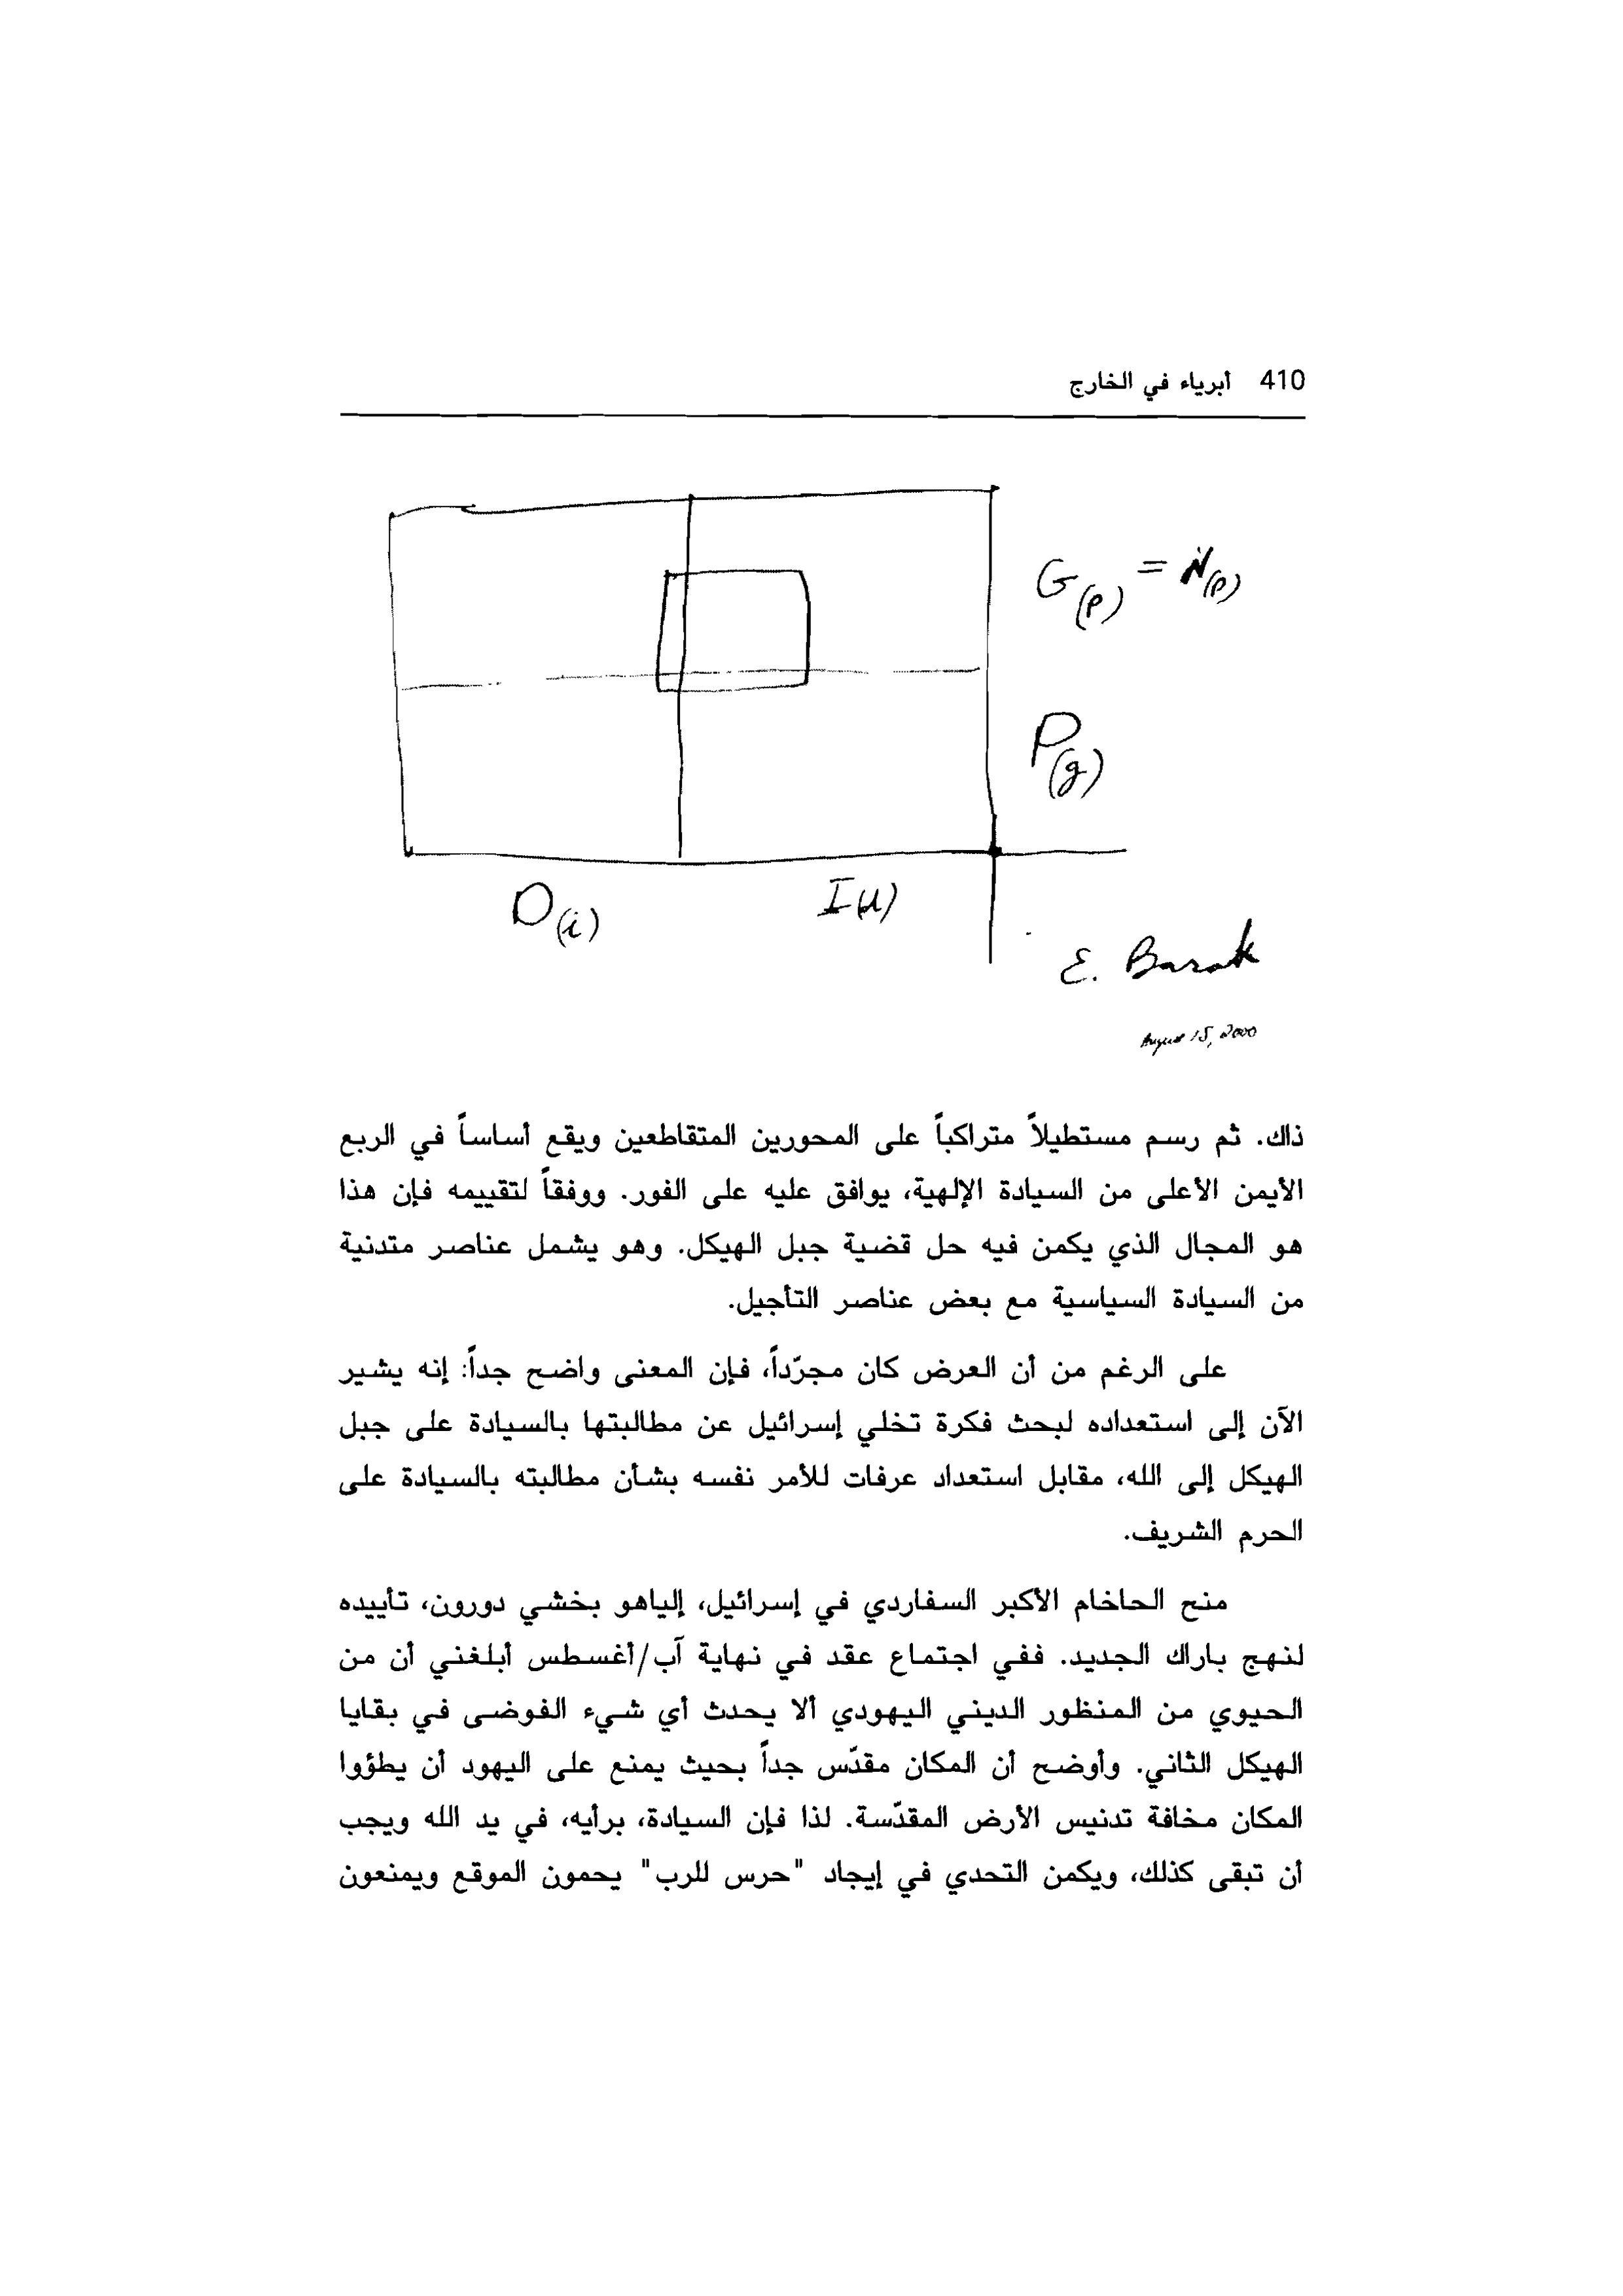 410 أبرياء في الخارج
G(p) = N(p)
P(g)
D(i) I(u)
E. Barak
August 15, 2000
ذاك. ثم رسم مستطيلاً متراكباً على المحورين المتقاطعين ويقع أساساً في الربع
الأيمن الأعلى من السيادة الإلهية، يوافق عليه على الفور. ووفقاً لتقييمه فإن هذا
هو المجال الذي يكمن فيه حل قضية جبل الهيكل. وهو يشمل عناصر متدنية
من السيادة السياسية مع بعض عناصر التأجيل.
على الرغم من أن العرض كان مجرّداً، فإن المعنى واضح جداً: إنه يشير
الآن إلى استعداده لبحث فكرة تخلي إسرائيل عن مطالبتها بالسيادة على جبل
الهيكل إلى الله، مقابل استعداد عرفات للأمر نفسه بشأن مطالبته بالسيادة على
الحرم الشريف.
منح الحاخام الأكبر السفاردي في إسرائيل، إلياهو بخشي دورون، تأييده
لنهج باراك الجديد. ففي اجتماع عقد في نهاية آب/أغسطس أبلغني أن من
الحيوي من المنظور الديني اليهودي ألا يحدث أي شيء الفوضى في بقايا
الهيكل الثاني. وأوضح أن المكان مقدّس جداً بحيث يمنع على اليهود أن يطؤوا
المكان مخافة تدنيس الأرض المقدّسة. لذا فإن السيادة، برأيه، في يد الله ويجب
أن تبقى كذلك، ويكمن التحدي في إيجاد "حرس للرب" يحمون الموقع ويمنعون